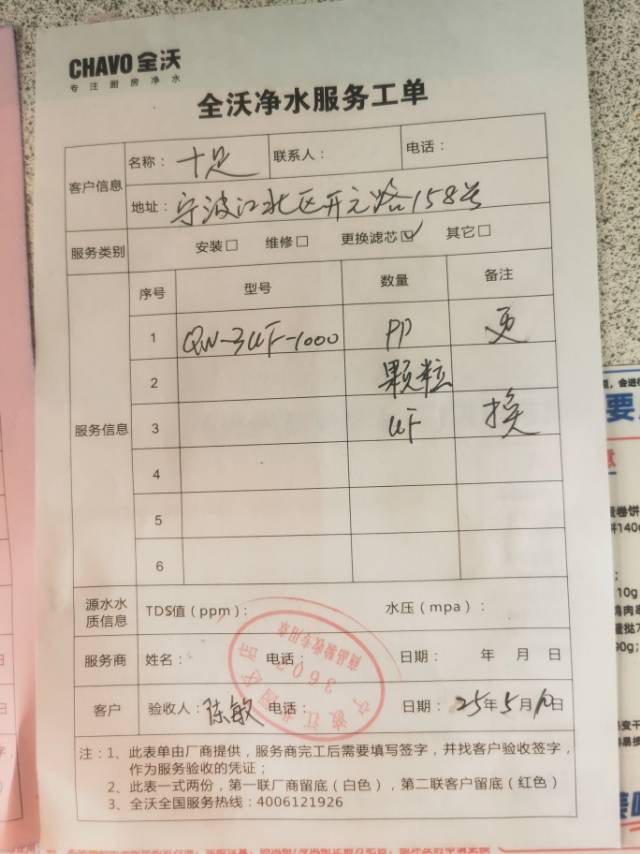 CHAVO 全沃
专注厨房净水
全沃净水服务工单
客户信息 名称：十足 联系人： 电话：
地址：宁波江北区开元路158号
服务类别 安装□ 维修□ 更换滤芯☑ 其它□
服务信息 序号 型号 数量 备注
1 QW-3UF-1000 PP 更
2 颗粒
3 UF 换
4
5
6
源水水质信息 TDS值（ppm）： 水压（mpa）：
服务商 姓名： 电话： 日期： 年 月 日
客户 验收人：陈敏 电话： 日期：25年5月10日
商品验收专用章
3607
注：1、此表单由厂商提供，服务商完工后需要填写签字，并找客户验收签字，
作为服务验收的凭证；
2、此表一式两份，第一联厂商留底（白色），第二联客户留底（红色）
3、全沃全国服务热线：4006121926